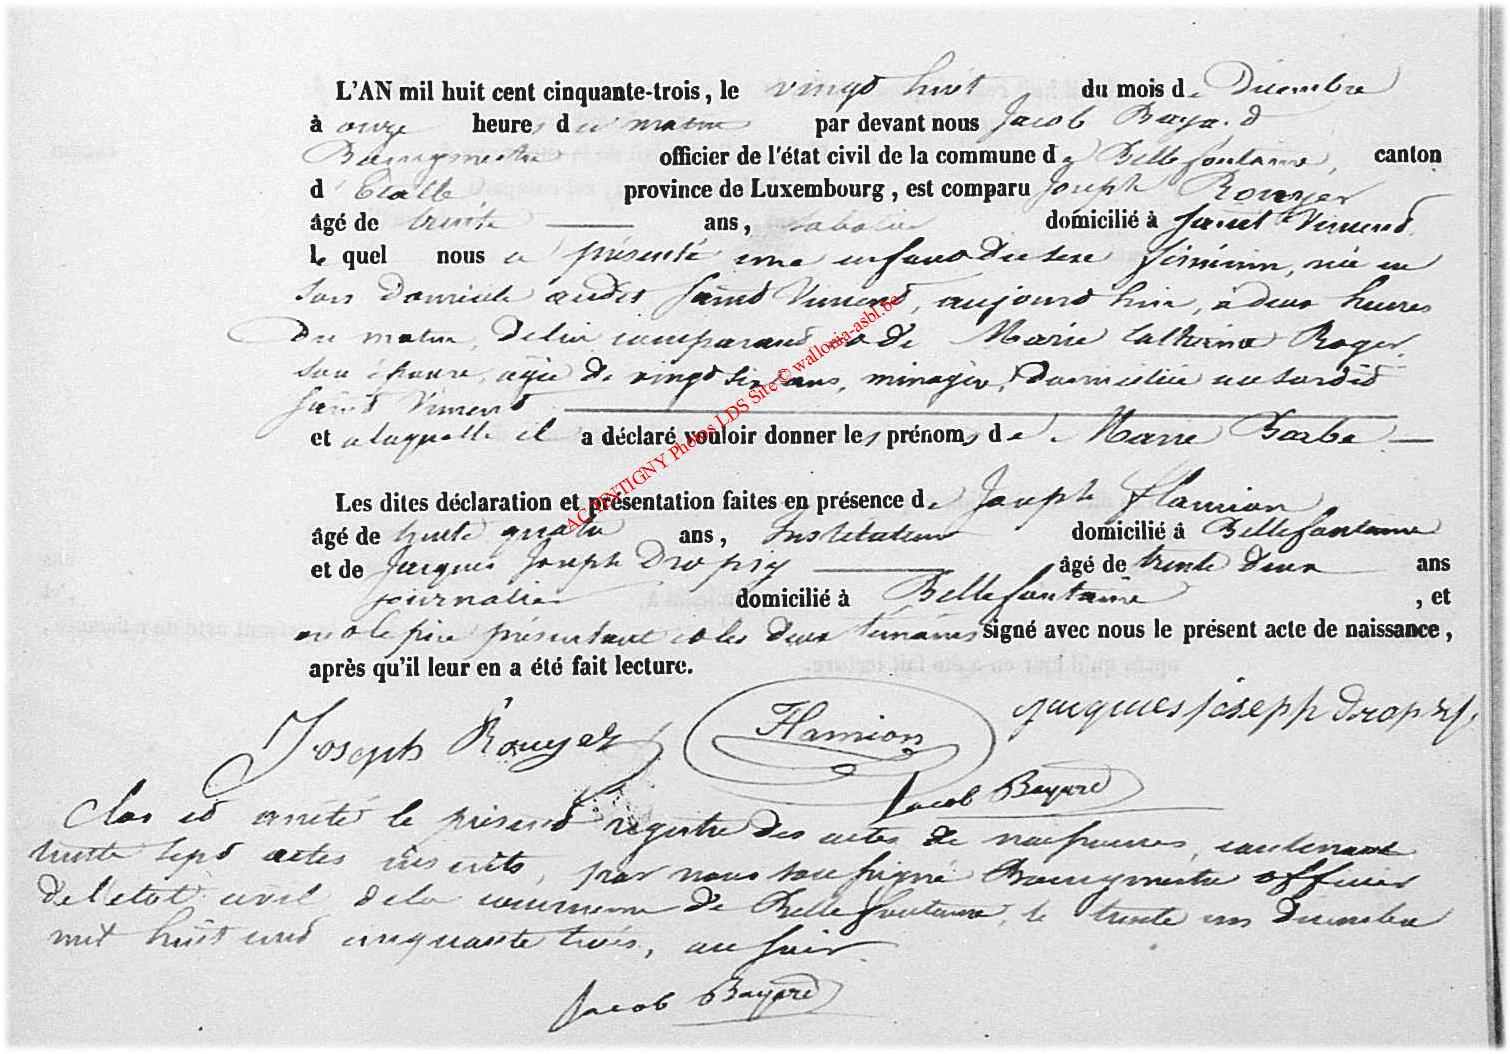 L'AN mil huit cent cinquante-trois, le vingt huit du mois de Décembre
à onze heures du matin par devant nous Jacob Bayard
Bourgmestre officier de l'état civil de la commune de Bellefontaine, canton
d'Etalle province de Luxembourg, est comparu Joseph Rouyer
âgé de trente ans, domicilié à Saint Vincent
lequel nous a présenté une enfant du sexe féminin, née en
son domicile audit Saint Vincent, aujourd'hui, à deux heures
du matin, de lui comparant et de Marie Catherine Roger
son épouse, agée de vingt six ans, ménagère, domiciliée susdit
Saint Vincent
et a laquelle il a déclaré vouloir donner les prénoms de Marie Barbe
Les dites déclaration et présentation faites en présence de Joseph Flamion
âgé de trente quatre ans, Instituteur domicilié à Bellefontaine
et de Jacques Joseph Dropsy âgé de trente deux ans
journalier domicilié à Bellefontaine, et
ont le père présentant et les deux témoins signé avec nous le présent acte de naissance,
après qu'il leur en a été fait lecture.
Joseph Rouyer Flamion jacques joseph dropsy
Jacob Bayard
Clos et arrêté le présent registre des actes de naissances, contenant
trente sept actes inscrits, par nous soussigné Bourgmestre officier
de l'état civil de la commune de Bellefontaine, le trente un décembre
mil huit cent cinquante trois, au soir
Jacob Bayard
AC TINTIGNY Photos LDS Site © wallonia-asbl.be